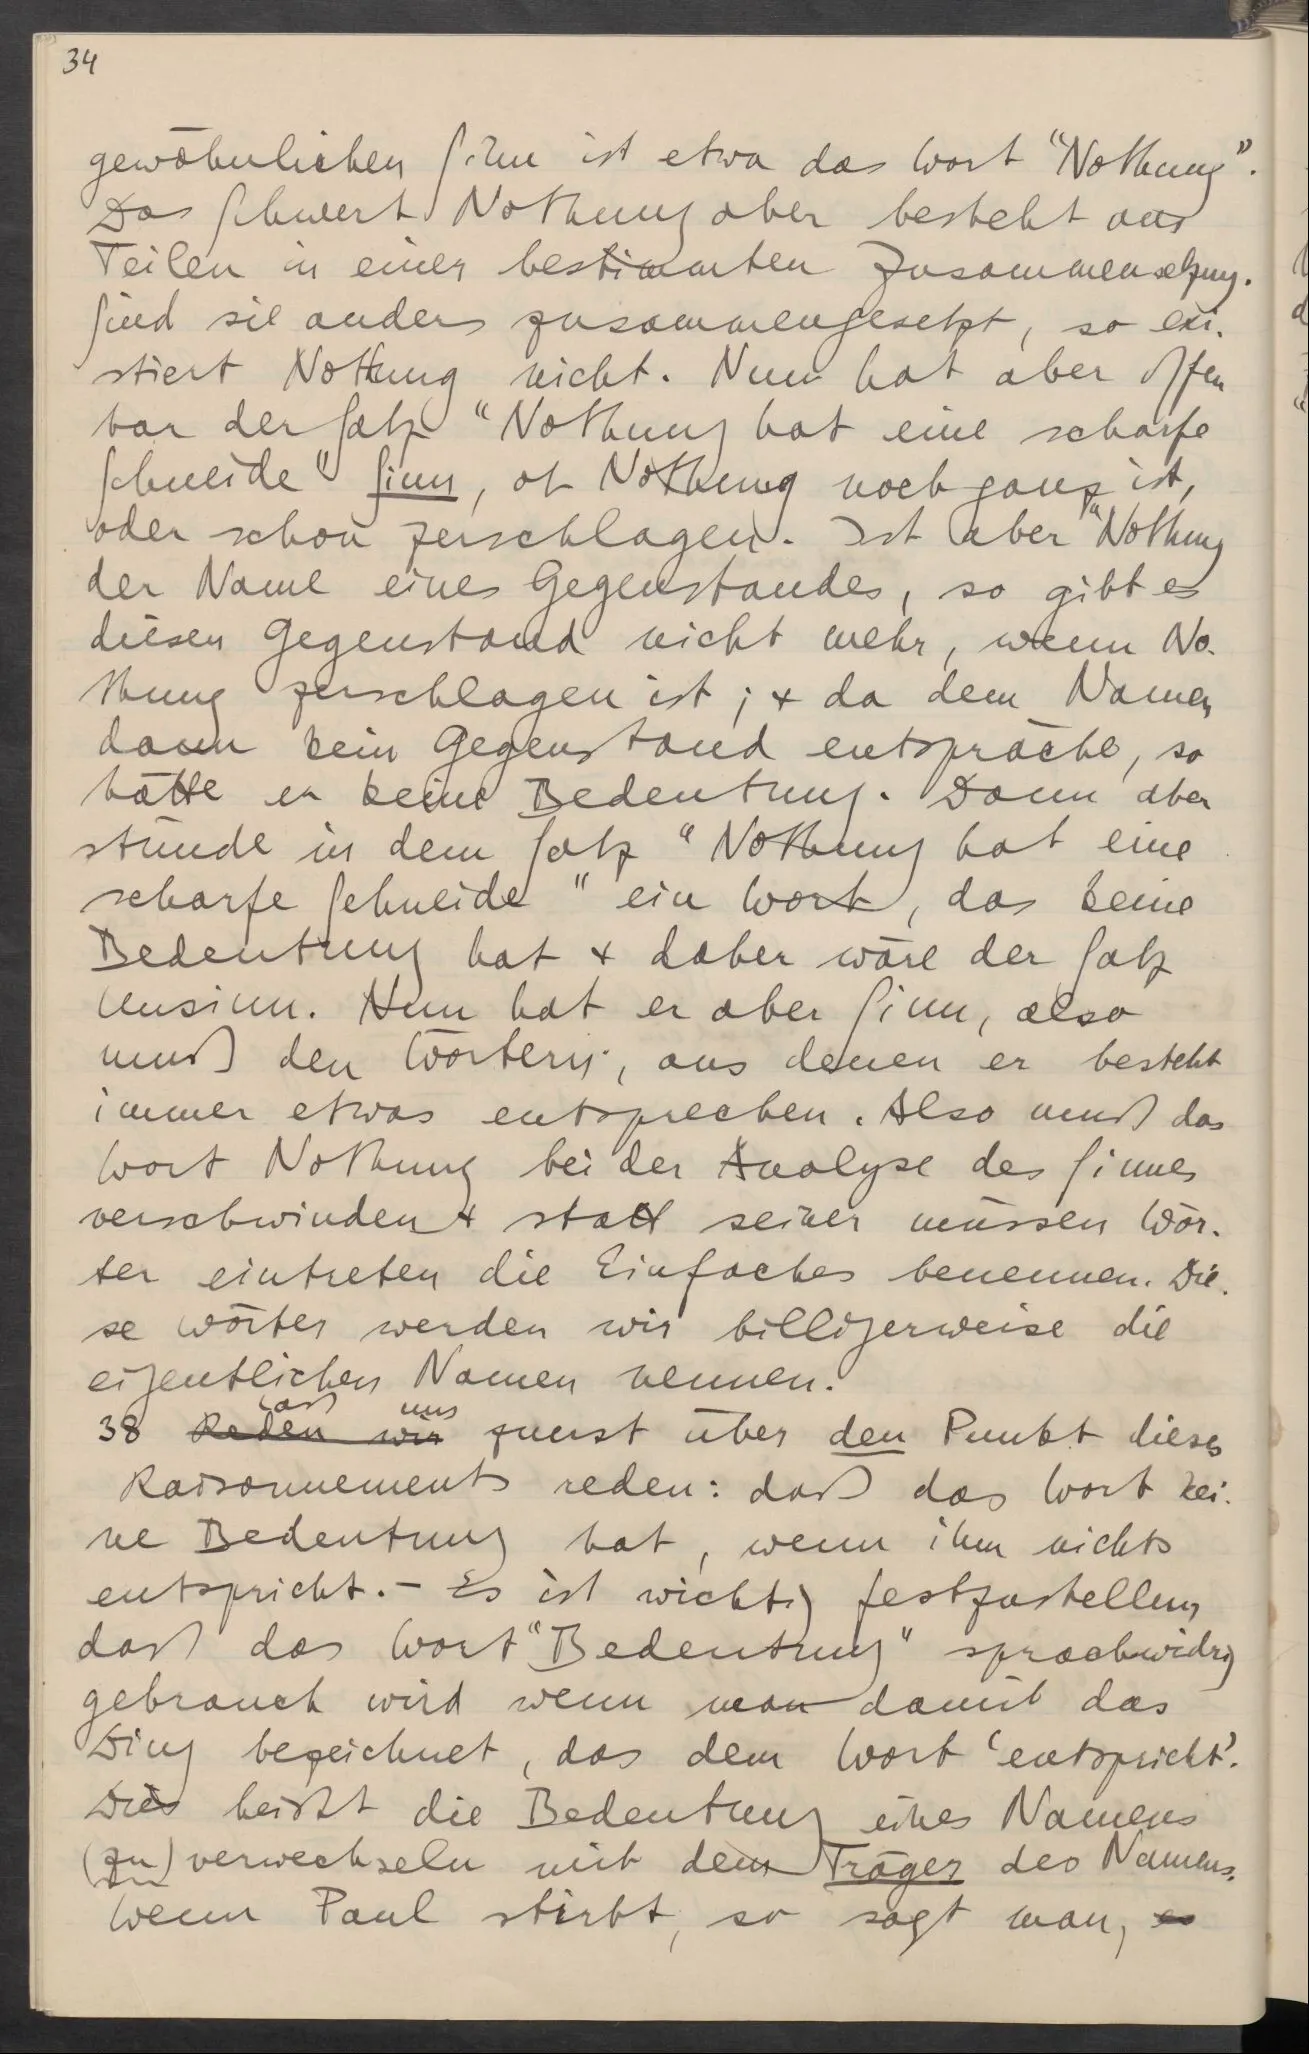 34
gewöhnlichen Sinn ist etwa das Wort "Nothung".
Das Schwert Nothung aber besteht aus
Teilen in einer bestimmten Zusammensetzung.
Sind sie anders zusammengesetzt, so exi-
stiert Nothung nicht. Nun hat aber offen
bar der Satz "Nothung hat eine scharfe
Schneide" Sinn, ob Nothung noch ganz ist,
oder schon zerschlagen. Ist aber "Nothung
der Name eines Gegenstandes, so gibt es
diesen Gegenstand nicht mehr, wenn No-
thung zerschlagen ist; + da dem Namen
dann kein Gegenstand entspräche, so
hätte er keine Bedeutung. Dann aber
stünde in dem Satz "Nothung hat eine
scharfe Schneide" ein Wort, das keine
Bedeutung hat + daher wäre der Satz
Unsinn. Nun hat er aber Sinn, also
muß den Wörtern, aus denen er besteht
immer etwas entsprechen. Also muß das
Wort Nothung bei der Analyse des Sinnes
verschwinden + statt seiner müssen Wör-
ter eintreten die Einfaches benennen. Die-
se Wörter werden wir billigerweise die
eigentlichen Namen nennen.
38 Reden wir Laß uns zuerst über den Punkt dieses
Raisonnements reden: daß das Wort kei-
ne Bedeutung hat, wenn ihm nichts
entspricht. – Es ist wichtig festzustellen
daß das Wort "Bedeutung" sprachwidrig
gebrauch wird wenn man damit das
Ding bezeichnet, das dem Wort 'entspricht'.
Dies heißt die Bedeutung eines Namens
(zu) verwechseln mit dem Träger des Namens.
Wenn Paul stirbt, so sagt man, es